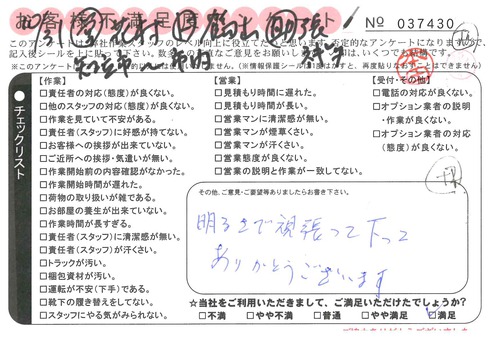 お客様不満足度アンケート
No 037430
このアンケートは弊社作業スタッフのレベル向上に役立てたいと思います。否定的なアンケートになりますので、
記入後シールに
チェックリスト
【作業】
□責任者の対応(態度)が良くない。
□他のスタッフの対応(態度)が良くない。
□作業を見ていて不安がある。
□責任者(スタッフ)に好感が持てない。
□お客様への挨拶が出来ていない。
□ご近所への挨拶・気遣いが無い。
□作業開始前の内容確認がなかった。
□作業開始時間が遅れた。
□荷物の取り扱いが雑である。
□お部屋の養生が出来ていない。
□作業時間が長すぎる。
□責任者(スタッフ)に清潔感が無い。
□責任者(スタッフ)が汗くさい。
□トラックが汚い。
□梱包資材が汚い。
□運転が不安(下手)である。
□靴下の履き替えをしてない。
□スタッフにやる気がみられない。
【営業】
□見積もり時間に遅れた。
□見積もり時間が長い。
□営業マンに清潔感が無い。
□営業マンが煙草くさい。
□営業マンが汗くさい。
□営業態度が良くない。
□営業の説明と作業が一致してない。
【受付・その他】
□電話の対応が良くない。
□オプション業者の説明
・作業が良くない。
□オプション業者の対応
(態度)が良くない。
その他、ご意見・ご要望等ありましたらお書き下さい。
明るさで頑張って下って
ありがとうございます
☆当社をご利用いただきまして、ご満足いただけたでしょうか?
□不満 □やや不満 □普通 □やや満足 □満足